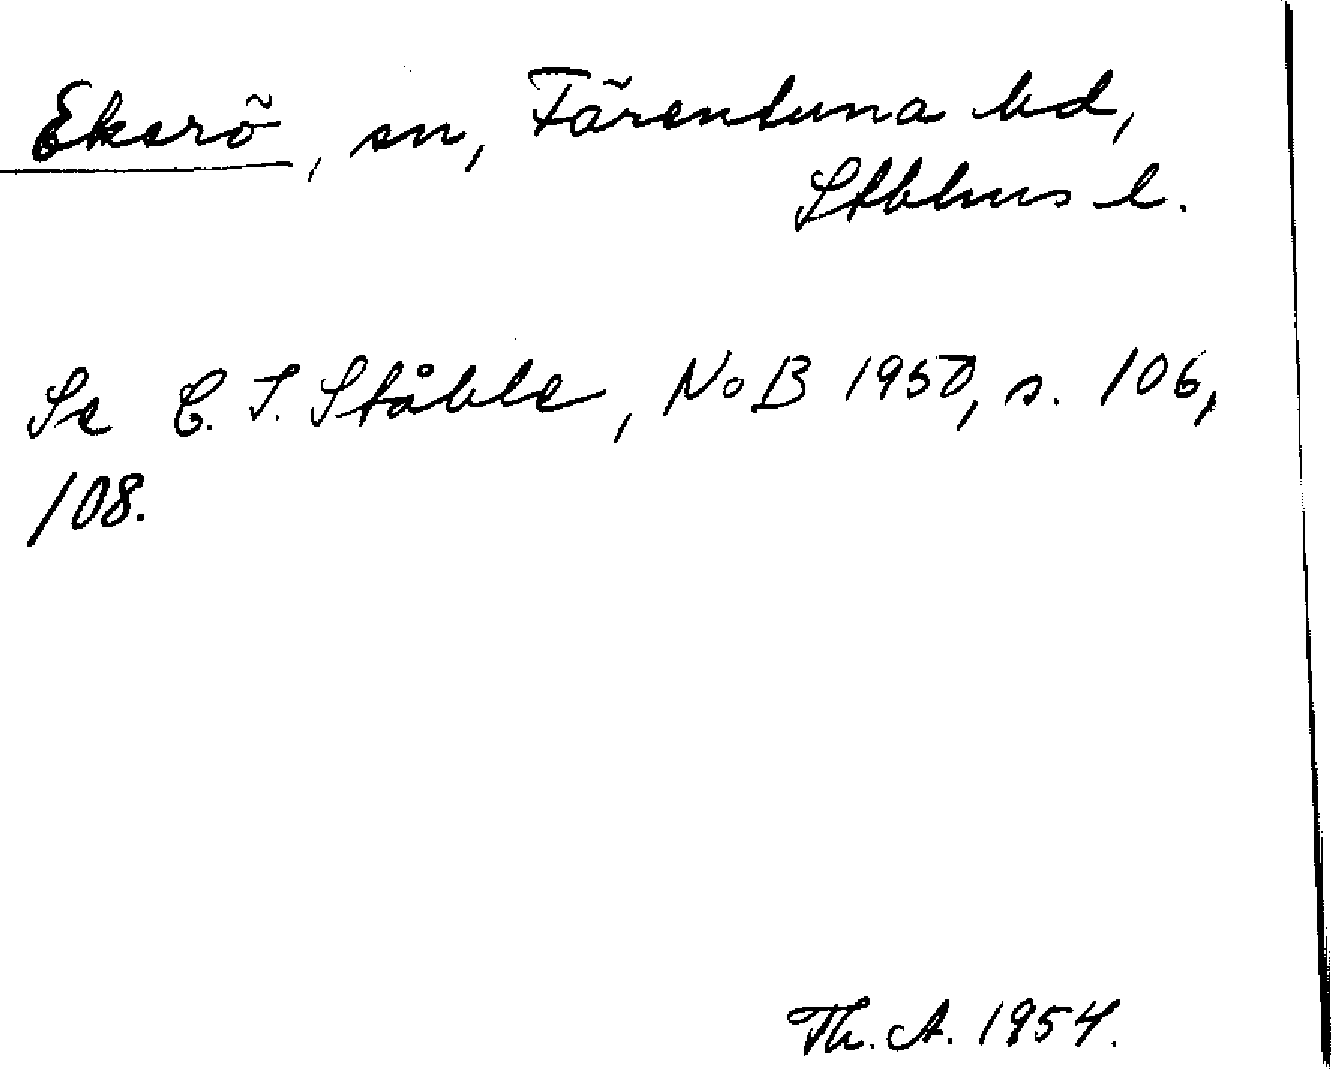 Ekerö, sn, Färentuna hd,
Stbhus l.
Se C. I. Ståhle, NoB 1950, s. 106,
108.
Th. A. 1954.